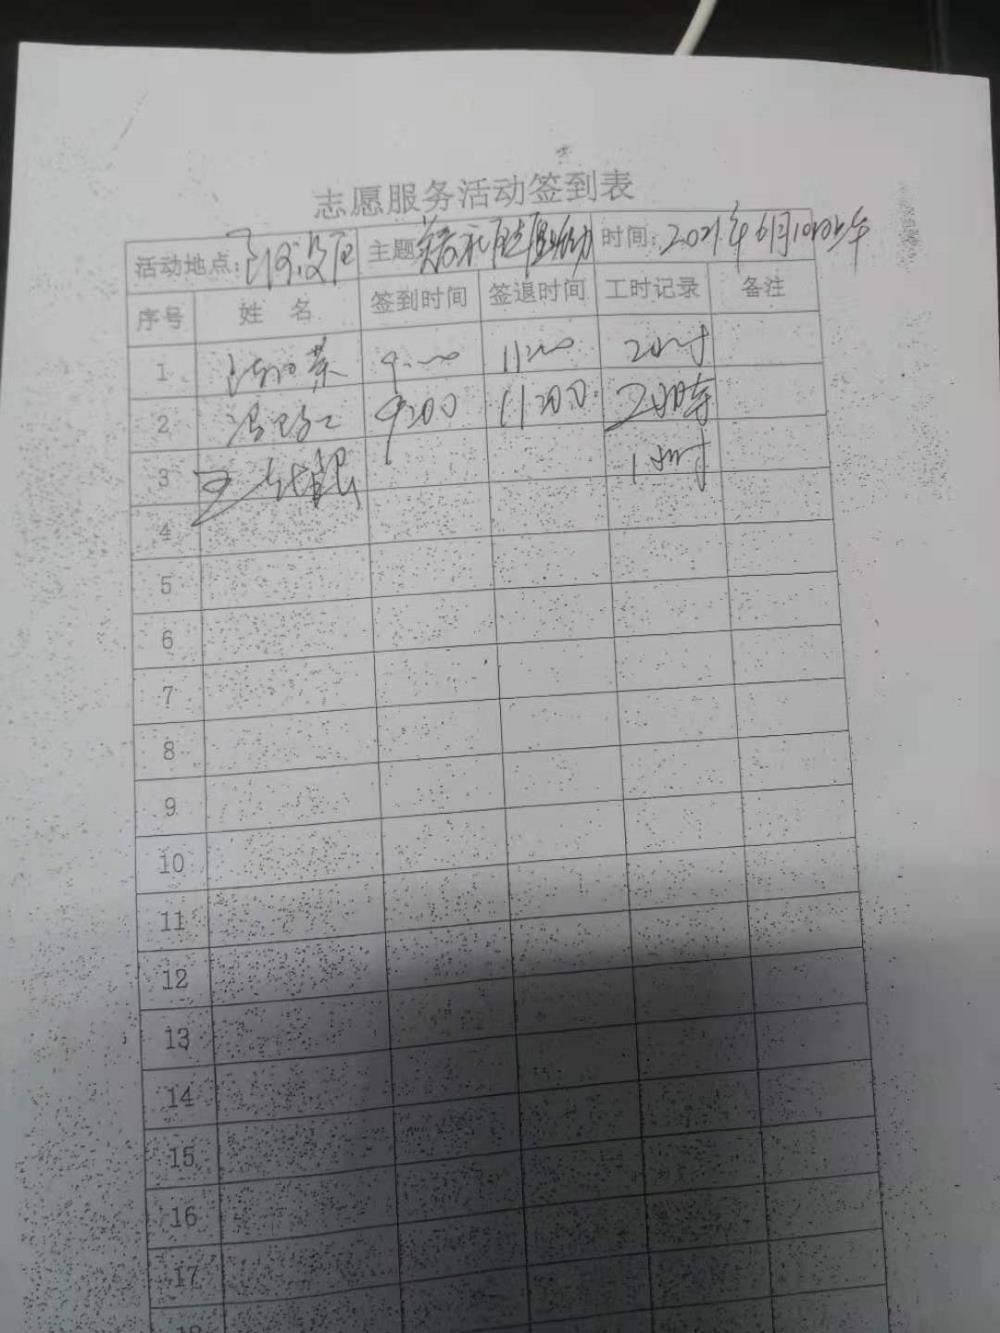 志愿服务活动签到表
活动地点: 主题: 时间: 2021年6月10日上午
序号 姓 名 签到时间 签退时间 工时记录 备注
1 9:00 11:00 2小时
2 9:00 11:00 2小时
3 1小时
4
5
6
7
8
9
10
11
12
13
14
15
16
17
18